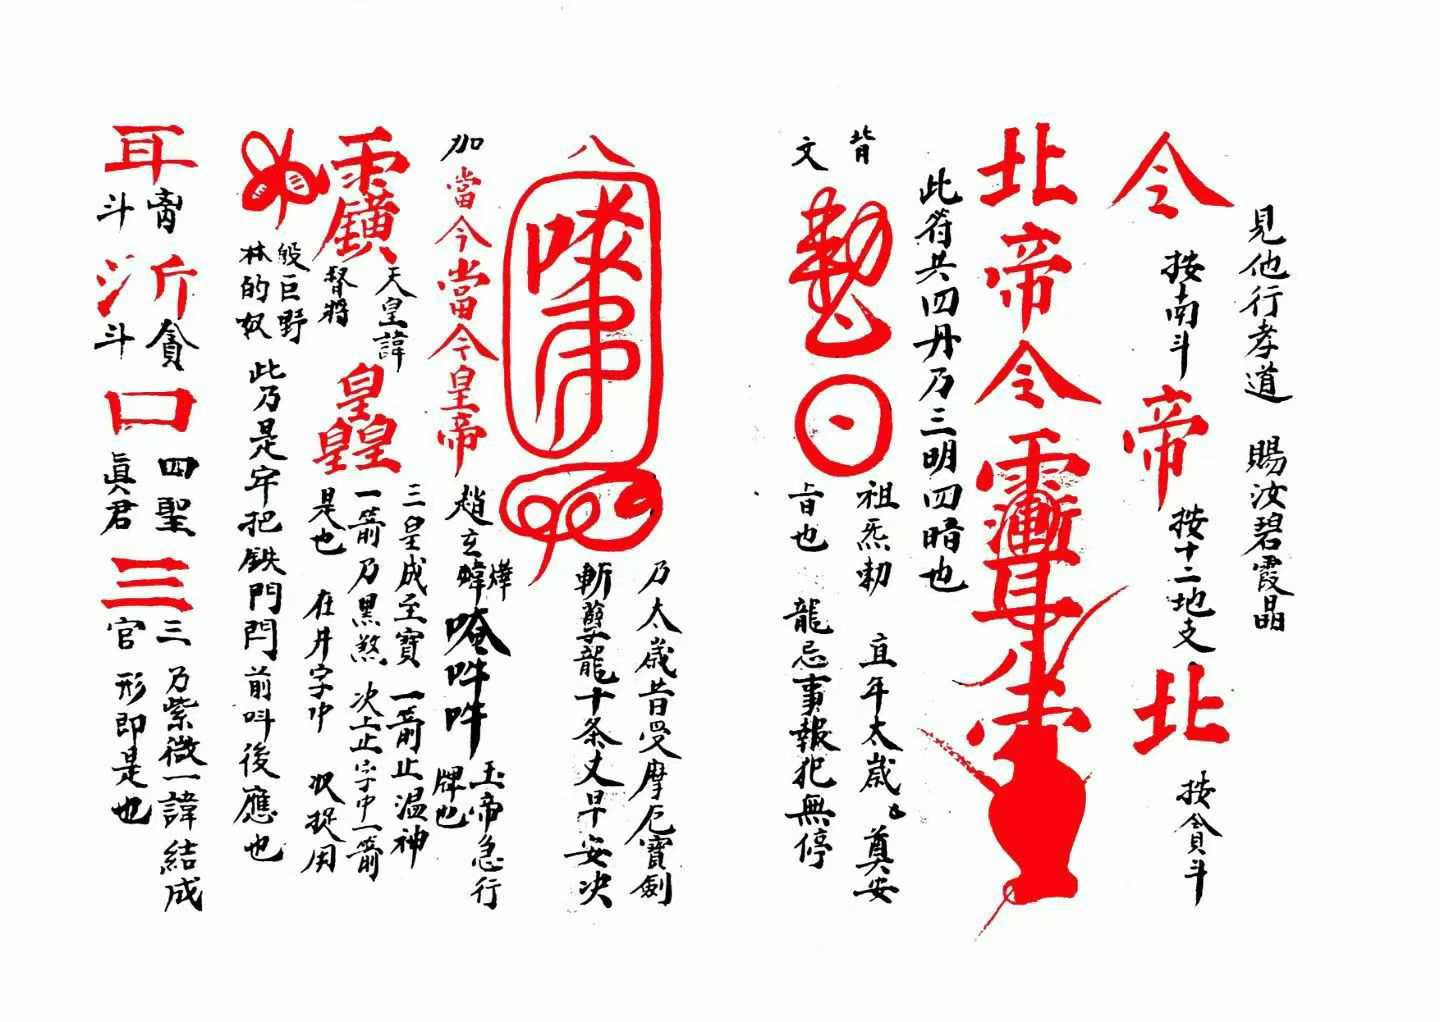 見他行孝道 賜汝碧霞晶
令 按南斗 帝 按十二地支 北 按貪斗
北帝令
此符共四丹乃三明四暗也
背文
祖炁勅 直年太歲 奠安
旨也 龍忌事報犯無停
乃太歲昔受摩厄寶劍
斬孽龍十条丈早安决
加當今當今皇帝 趙玄 玉帝急行牌也
天皇諱 督將 皇皇皇
三皇成至寶 一箭止温神
一箭乃黑煞 次上止字中一箭
是也 在井字中 状捉用
殷巨野
林的奴
此乃是牢把鉄門閂前呌後應也
耳 斗 沂 貪斗 口 四聖真君 三 三官
乃紫微一諱結成
形即是也